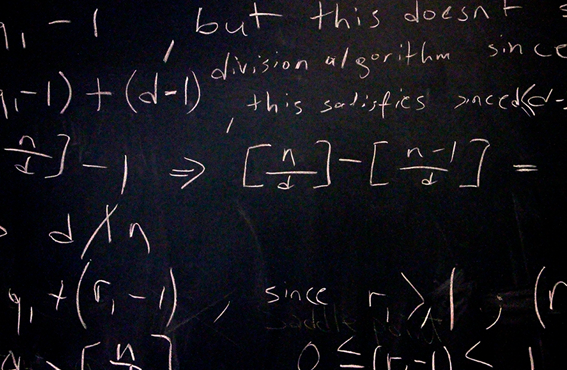 q₁ - 1 , but this doesnt
division algorithm since
q₁-1) + (d-1) , this satisfies since
[n/d] - 1 ⇒ [n/d] - [n-1/d] =
d ∤ n
q₁ + (r₁ - 1) , since r₁ ≥ 1 , (r
saddle point
[n/d] 0 ≤ (r₁-1) <